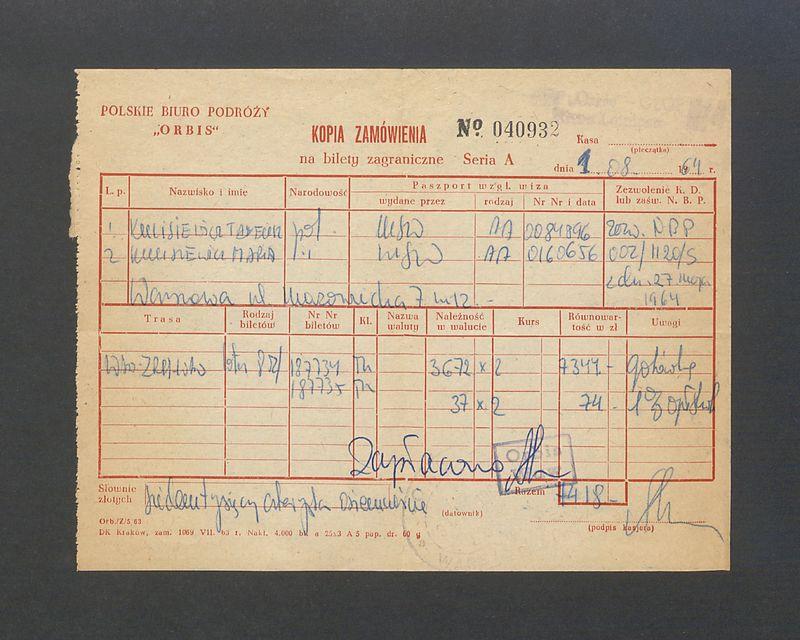 POLSKIE BIURO PODRÓŻY
„ORBIS“
KOPIA ZAMÓWIENIA
№ 040932
Kasa
(pieczątka)
na bilety zagraniczne Seria A
dnia 1. 08. 1964 r.
L. p. Nazwisko i imię Narodowość Paszport wzgl. wiza Zezwolenie K. D. lub zaśw. N. B. P.
wydane przez rodzaj Nr Nr i data
1. pol. AA 0084896 zezw. NBP
2 MARIA AA 0160656 002/1120/S
z dn. 27 maja
Warszawa ul. Mazowiecka 7 m 12. -
1964
Trasa Rodzaj biletów Nr Nr biletów Kl. Nazwa waluty Należność w walucie Kurs Równowartość w zł Uwagi
187734 3672 x 2 7344.- gotówką
187735
37 x 2 74.-
Zapłacono
Orbis
Słownie złotych siedem tysięcy czterysta osiemnaście
Razem 7418.-
(datownik)
(podpis kasjera)
Orb./Z/5/63
DK Kraków, zam. 1069 VII. 63 r. Nakł. 4.000 bl. a 25x3 A 5 pap. dr. 60 g